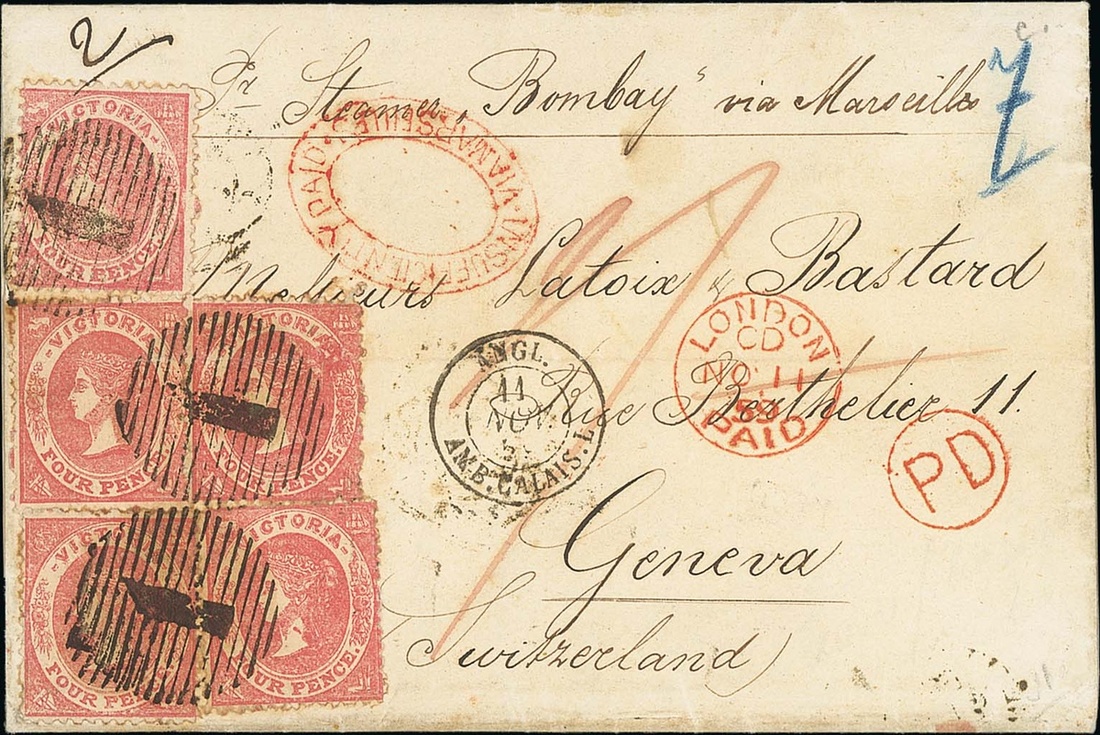 2/
c.
7
Pr Steamer „Bombay" via Marseilles
INSUFFICIENTLY PAID. VIA MARSEILLES.
Messieurs Latoix & Bastard
Rue Berthelier 11.
Geneva
(Switzerland)
VICTORIA
FOUR PENCE
VICTORIA
FOUR PENCE
VICTORIA
FOUR PENCE.
VICTORIA
FOUR PEN
VICTORIA
FOUR PENCE.
1
1
1
ANGL.
11
NOV.
AMB. CALAIS. L
LONDON
CD
NO 11
PAID
PD